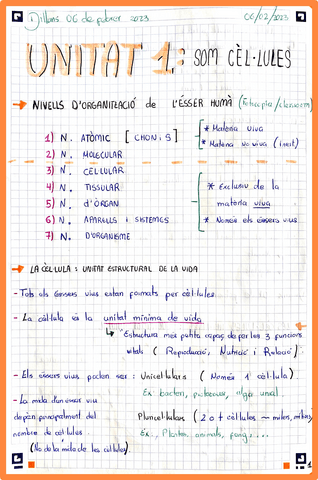 Dilluns 06 de febrer 2023
06/02/2023
UNITAT 1: SOM CÈL·LULES
→ NIVELLS D'ORGANITZACIÓ de L'ÉSSER HUMÀ (Fotocopia/classroom)
1) N. ATÒMIC [CHON:S]
2) N. MOLECULAR
* Matèria viva
* Matèria no viva (inert)
3) N. CEL·LULAR
4) N. TISSULAR
5) N. d'ÒRGAN
6) N. APARELLS i SISTEMES
7) N. D'ORGANISME
* Exclusiu de la
matèria viva
* Només els éssers vius
→ LA CÈL·LULA: UNITAT ESTRUCTURAL DE LA VIDA
- Tots els éssers vius estan formats per cèl·lules.
- La cèl·lula és la unitat mínima de vida
↳ "Estructura més petita capaç de fer les 3 funcions
vitals (Reproducció, Nutrició i Relació)
- Els éssers vius poden ser: Unicel·lulars (Només 1 cèl·lula)
Ex: bacteri, protozous, alga unicel.
- La mida d'un ésser viu
depèn principalment del
nombre de cèl·lules.
(No de la mida de les cèl·lules).
Pluricel·lulars (2 o + cèl·lules ~ miles, miles)
Ex., Plantes, animals, fongs...
1